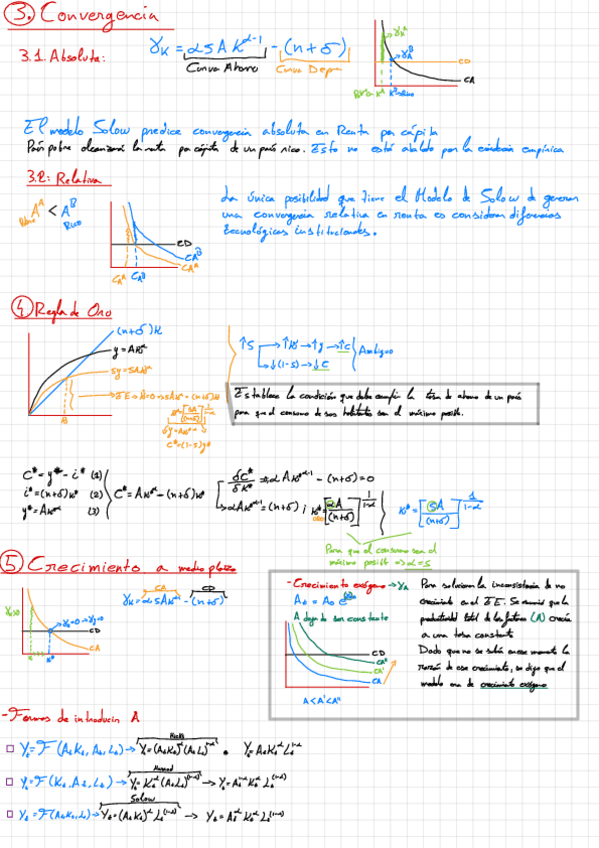 3. Convergencia
3.1. Absoluta:
γK = αsAK^(α-1) - (n+δ)
Curva Ahorro
Curva Depre
γK^A
γK^B
CD
CA
El modelo Solow predice convergencia absoluta en Renta per cápita
País pobre alcanzará la renta per cápita de un país rico. Esto no está avalado por la evidencia empírica
3.2: Relativa
A^A < A^B
Pobre
Rico
CD
CA^B
CA^A
CA^A CA^B
La única posibilidad que tiene el Modelo de Solow de generar
una convergencia relativa en renta es considerar diferencias
tecnológicas institucionales.
4 Regla de Oro
(n+δ)K
y = AK^α
sy = sAK^α
↑s → ↑K → ↑y → ↑c
↓(1-s) → ↓c
Ambiguo
Establece la condición que debe cumplir la tasa de ahorro de un país
para que el consumo de sus habitantes sea el máximo posible.
C*=(1-s)y*
C* = y* - i* (1)
i* = (n+δ)K* (2)
y* = AK*^α (3)
C* = AK*^α - (n+δ)K*
δC*/δK* = αAK*^(α-1) - (n+δ) = 0
αAK*^(α-1) = (n+δ) ; K*oro = [αA/(n+δ)]^(1/(1-α))
K* = [sA/(n+δ)]^(1/(1-α))
Para que el consumo sea el
máximo posible => α = s
5 Crecimiento a medio plazo
CA
CD
γK = αsAK^(α-1) - (n+δ)
γK>0
γK=0 → γy=0
CD
CA
K*
- Crecimiento exógeno → γA
A deja de ser constante
CD
CA''
CA'
CA
A<A'<A''
Para solucionar la inconsistencia de no
crecimiento en el EE. Se asumió que la
productividad total de los factores (A) crecía
a una tasa constante
Dado que no se sabía exactamente la
razón de ese crecimiento, se dijo que el
modelo era de crecimiento exógeno
- Formas de introducir A
Hicks
Yt = F(AtKt, At, Lt) → Yt = (AtKt)^α (AtLt)^(1-α) • Yt = AtKt^α Lt^(1-α)
Harrod
Yt = F(Kt, At, Lt) → Yt = Kt^α (AtLt)^(1-α) → Yt = At^(1-α) Kt^α Lt^(1-α)
Solow
Yt = F(AtKt, Lt) → Yt = (AtKt)^α Lt^(1-α) → Yt = At^α Kt^α Lt^(1-α)